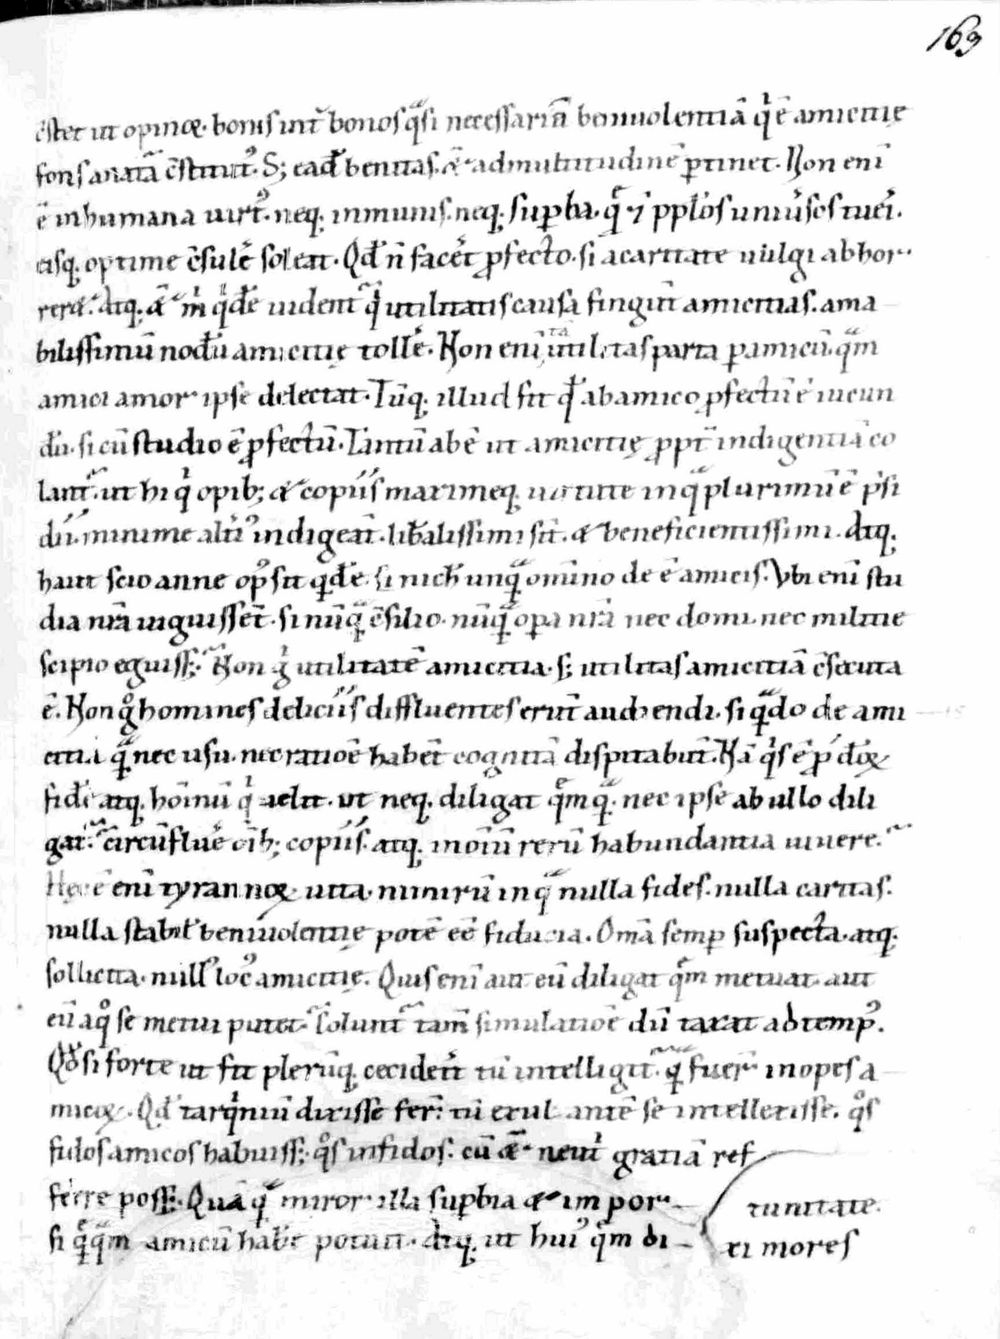 169
c̄stet ut opinor. bonis int̄ bonos q̄si necessariā beniuolentiā q̇ ē amicitie
fons a natā c̄stitut᷒. S; eadē bonitas. & ad multitudinē ꝑtinet. Non enī
ē inhumana uirt᷒. neq; inmunis. neq; suꝑba. q̄ & pplōs uniūsos tueri.
eisq; optime c̄sulē soleat. Qd̄ ñ facēt ꝓfecto. si a caritate uulgi abhor
reret. Atq; & m̄ q̇dē uident᷑ q̇ utilitatis causa fingūt amicitias. ama
bilissimū nodū amicitię tollē. Non enī tā utilitas parta ꝑ amicū. q̄m
amici amor ipse delectat. Tūq; illud fit qd̄ ab amico ꝓfectū ē iucun
dū. si cū studio ē ꝓfectū. Tantū abē ut amicitię ꝓpt̄ indigentiā co
lant᷑. ut hi q̇ opib; & copiis maximeq; uirtute in q̄ plurimū ē p̄si
dii. minime alti᷒ indigeāt. lib̄alissimi sīt. & beneficientissimi. Atq;
haut scio anne op᷒ sit q̇dē. si nich̄ unq̄ omīno deē amicis. Vbi enī stu
dia nr̄a uiguissēt. si nūq̄ c̄silio. nūq̄ oꝑa nr̄a nec domi. nec militie
scipio eguiss;. Non g̊ utilitatē amicitia. s; utilitas amicitiā c̄secuta
ē. Non g̊ homines deliciis diffluentes erūt audiendi. si q̄do de ami
citia q̄ nec usu. nec ratiōe habēt cognitā disputabūt. Nā q̇s ē ꝓ dō℞
fidē atq; hoīnū q̇ uelit. ut neq; diligat q̄mq̄. nec ipse ab ullo dili
gat᷑. circūfluē oīb; copiis. atq; in oīnū rerū habundantia uiuere.
Hęc ē enī tyrannoꝝ uita. nimirū in q̄ nulla fides. nulla caritas.
nulla stabil̄ beniuolentię potē eē fiducia. Omā semꝑ suspecta. atq;
sollicita. null᷒ loc᷒ amicitię. Quis enī aut eū diligat q̄m metuat. aut
eū a q̊ se metui putet. Colunt᷑ tam̄ simulatiōe dū taxat ad temp᷒.
Qd̄ si forte ut fit plerūq; cecidērt tū intelligit᷑. q̄ fuer̄ inopes a
micoꝝ. Qd̄ tarq̇niū dixisse fer̄t tū exul antē se intellexisse. q̊s
fidos amicos habuiss;. q̊s infidos. cū & neut̄ gratiā ref
ferre poss;. Quāq̄ miror illa suꝑbia & impor tunitate.
si q̄q̄m amicū habē potuit. Atq; ut hui᷒ q̄m di xi mores